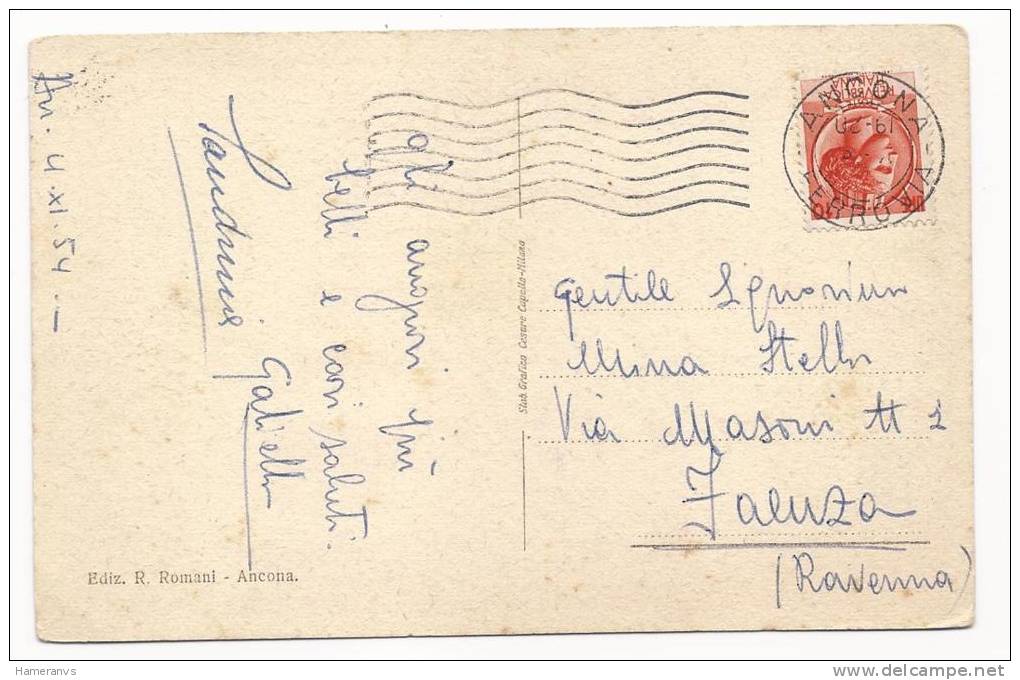 An. 4.XI.54 —
agli auguri più
belli e cari saluti.
Gabriella
Gentile Signorina
Mina Stella
Via Masoni H 2
Faenza
(Ravenna)
ANCONA
FERROVIA
19-20
Stab. Grafico Cesare Capello-Milano
Ediz. R. Romani - Ancona.
Hameranvs
http://www.delcampe.net